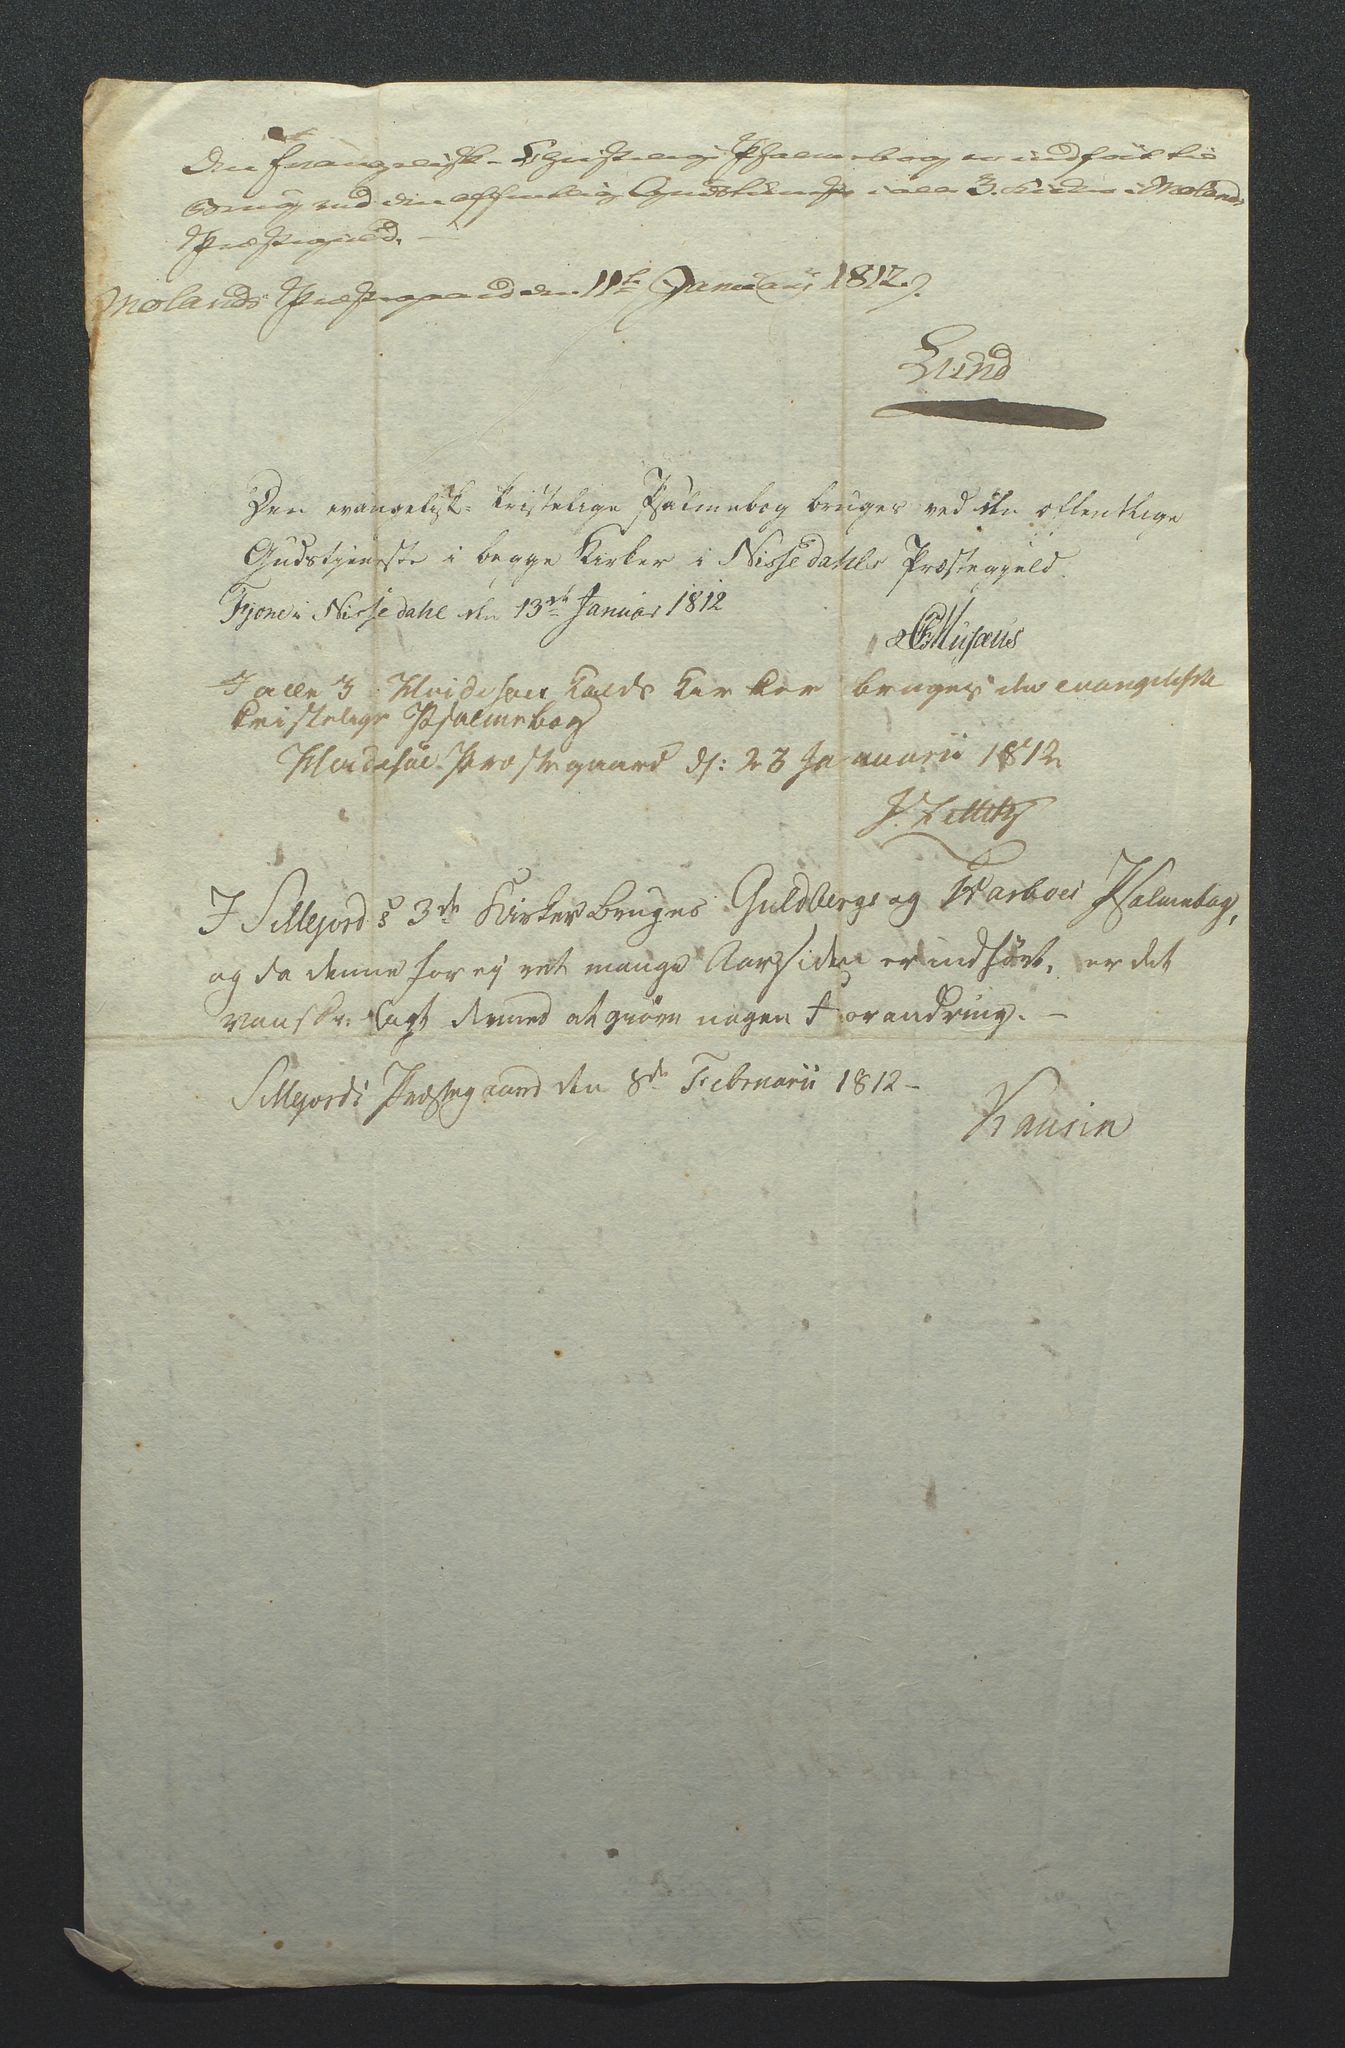 Den Evangelisk-Christelige Psalmebog er indført til
Brug ved den offentlig Gudstieneste i alle 3 Kirker i Molands
Præstegield. –
Molands Præstegaard den 11te Januarii 1812.
Lund
Den evangelisk-kristelige Psalmebog bruges ved den offentlige
Gudstjeneste i begge Kirker i Nissedahls Præstegjeld.
Fjone i Nissedahl den 13de Januar 1812
Musæus
I alle 3 Hvidesøes Kalds Kirker bruges den evangeliske
kristelige Psalmebog
Hvidesøe Præstegaard d: 23 Januarii 1812
I Sillejords 3de Kirker bruges Guldbergs og Harboes Psalmebog,
og da denne for ej ret mange Aar siden er indført, er det
vanskeligt dermed at giøre nogen Forandring. –
Sillejords Præstegaard den 8de Februarii 1812 –
Kausin